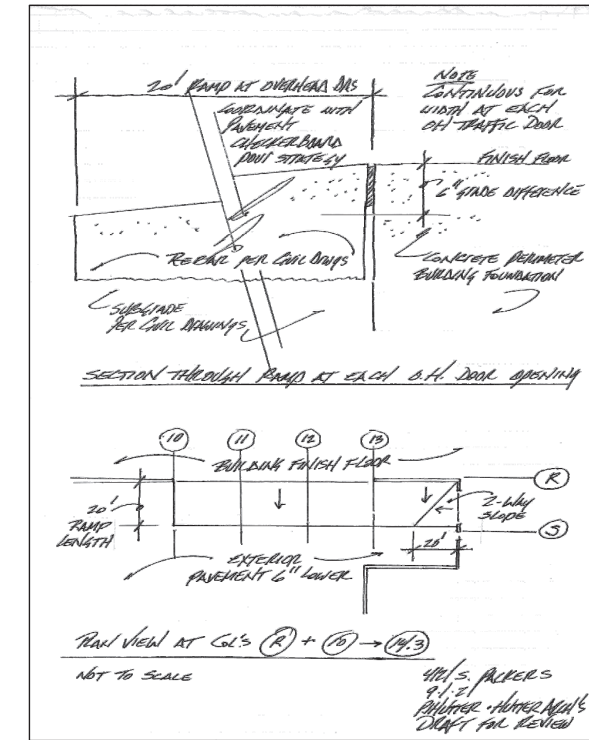 20' RAMP AT OVERHEAD DRS
COORDINATE WITH
PAVEMENT
CHECKERBOARD
POUR STRATEGY
NOTE
CONTINUOUS FOR
WIDTH AT EACH
OH TRAFFIC DOOR
FINISH FLOOR
6" GRADE DIFFERENCE
REBAR PER CIVIL DRWGS
CONCRETE PERIMETER
BUILDING FOUNDATION
SUBGRADE
PER CIVIL DRAWINGS
SECTION THROUGH RAMP AT EACH O.H. DOOR OPENING
10 11 12 13
BUILDING FINISH FLOOR
R
20'
RAMP
LENGTH
2-WAY
SLOPE
S
20'
EXTERIOR
PAVEMENT 6" LOWER
PLAN VIEW AT COL'S R + 10 → 14.3
NOT TO SCALE
S. PACKERS
9.1.21
DRAFT FOR REVIEW